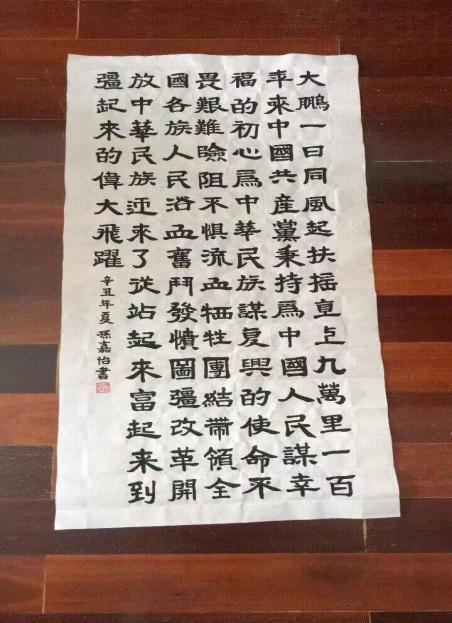 大鵬一日同風起扶摇直上九萬里一百
年來中國共産黨秉持爲中國人民謀幸
福的初心爲中華民族謀复興的使命不
畏艱難險阻不惧流血牺牲團結帶領全
國各族人民浴血奮鬥發憤圖彊改革開
放中華民族迎來了從站起來富起来到
彊起來的偉大飛躍
辛丑年夏 孫嘉書